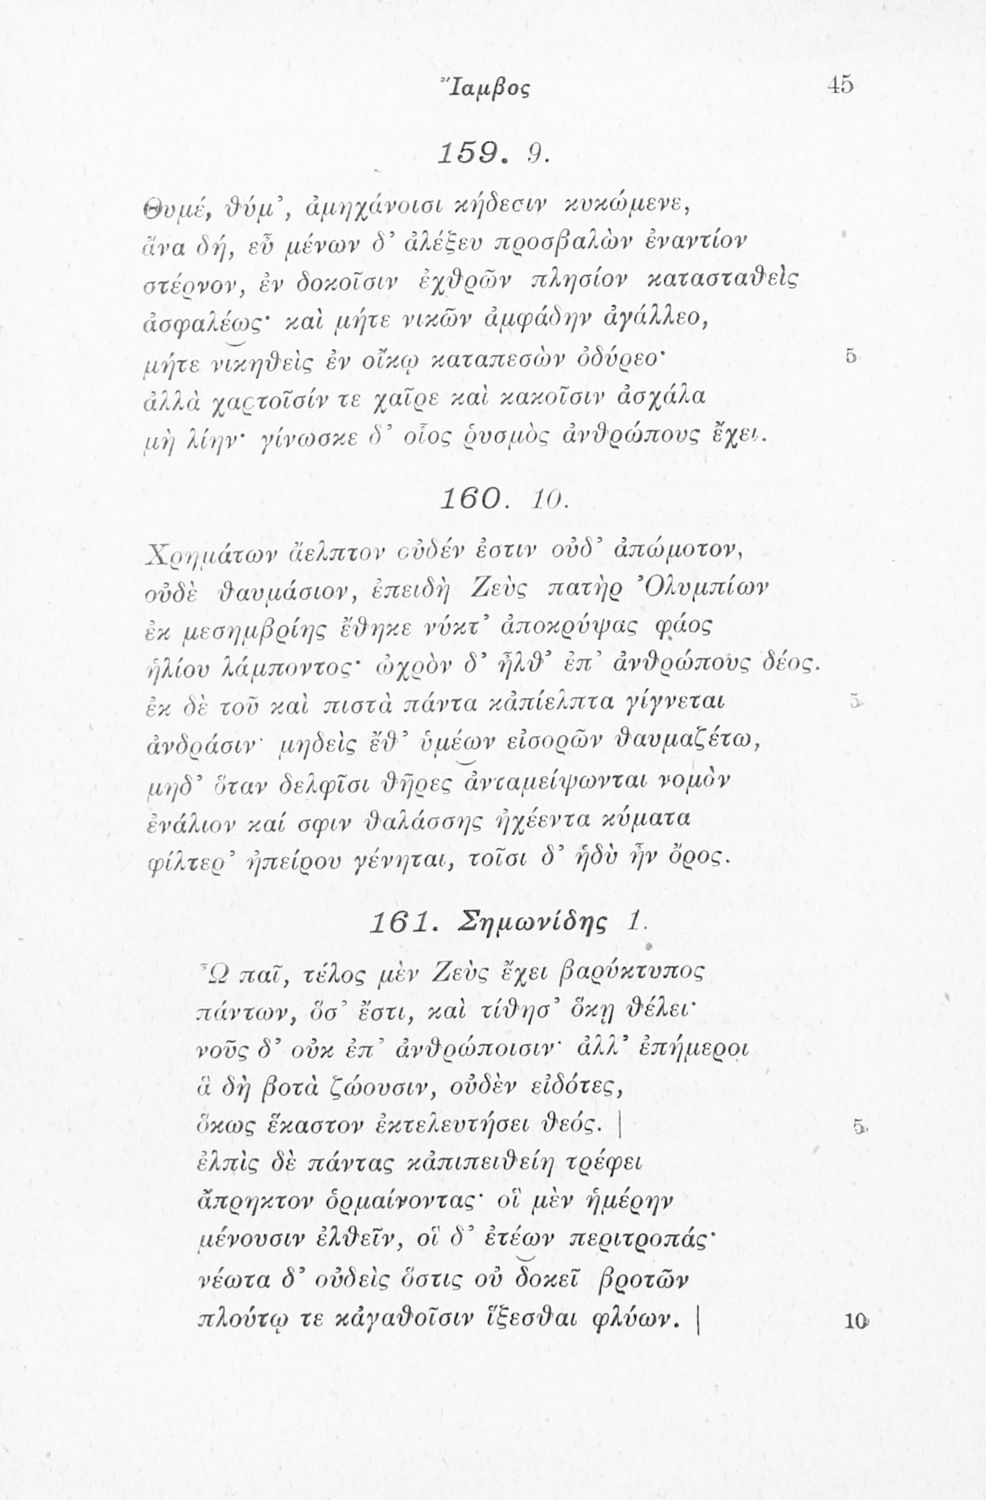 Ἴαμβος 45
159. 9.
Θυμέ, θύμ’, ἀμηχάνοισι κήδεσιν κυκώμενε,
ἄνα δή, εὖ μένων δ’ ἀλέξευ προσβαλὼν ἐναντίον
στέρνον, ἐν δοκοῖσιν ἐχθρῶν πλησίον κατασταθεὶς
ἀσφαλέως· καὶ μήτε νικῶν ἀμφάδην ἀγάλλεο,
μήτε νικηθεὶς ἐν οἴκῳ καταπεσὼν ὀδύρεο· 5
ἀλλὰ χαρτοῖσίν τε χαῖρε καὶ κακοῖσιν ἀσχάλα
μὴ λίην· γίνωσκε δ’ οἷος ῥυσμὸς ἀνθρώπους ἔχει.
160. 10.
Χρημάτων ἄελπτον οὐδέν ἐστιν οὐδ’ ἀπώμοτον,
οὐδὲ θαυμάσιον, ἐπειδὴ Ζεὺς πατὴρ Ὀλυμπίων
ἐκ μεσημβρίης ἔθηκε νύκτ’ ἀποκρύψας φάος
ἡλίου λάμποντος· ὠχρὸν δ’ ἦλθ’ ἐπ’ ἀνθρώπους δέος.
ἐκ δὲ τοῦ καὶ πιστὰ πάντα κἀπίελπτα γίγνεται 5
ἀνδράσιν· μηδεὶς ἔθ’ ὑμέων εἰσορῶν θαυμαζέτω,
μηδ’ ὅταν δελφῖσι θῆρες ἀνταμείψωνται νομὸν
ἐνάλιον καί σφιν θαλάσσης ἠχέεντα κύματα
φίλτερ’ ἠπείρου γένηται, τοῖσι δ’ ἡδὺ ἦν ὄρος.
161. Σημωνίδης 1.
Ὦ παῖ, τέλος μὲν Ζεὺς ἔχει βαρύκτυπος
πάντων, ὅσ’ ἔστι, καὶ τίθησ’ ὅκῃ θέλει·
νοῦς δ’ οὐκ ἐπ’ ἀνθρώποισιν· ἀλλ’ ἐπήμεροι
ἃ δὴ βοτὰ ζώουσιν, οὐδὲν εἰδότες,
ὅκως ἕκαστον ἐκτελευτήσει θεός. | 5
ἐλπὶς δὲ πάντας κἀπιπειθείη τρέφει
ἄπρηκτον ὁρμαίνοντας· οἳ μὲν ἡμέρην
μένουσιν ἐλθεῖν, οἳ δ’ ἐτέων περιτροπάς·
νέωτα δ’ οὐδεὶς ὅστις οὐ δοκεῖ βροτῶν
πλούτῳ τε κἀγαθοῖσιν ἵξεσθαι φλύων. | 10